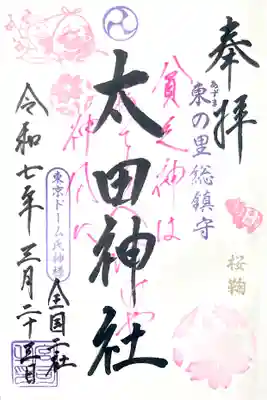 奉拝
東の里総鎮守
あずま
桜鞠
貧乏神は
太田神社
東京ドーム氏神様
全国一社
令和七年三月二十五日